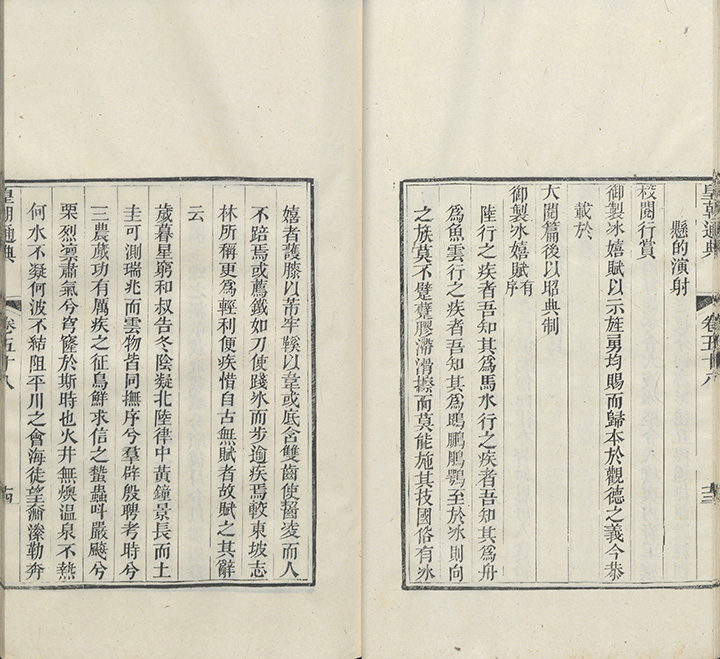 皇朝通典
卷五十八
十三
懸的演射
校閱行賞
御製冰嬉賦以示旌勇均賜而歸本於觀德之義今恭
載於
大閱篇後以昭典制
御製冰嬉賦有序
陸行之疾者吾知其爲馬水行之疾者吾知其爲舟
爲魚雲行之疾者吾知其爲鵾鵬鵰鶚至於冰則向
之族莫不躄躠膠滯滑擦而莫能施其技國俗有冰
嬉者護膝以芾牢鞵以韋或底含雙齒使齧凌而人
不踣焉或薦鐵如刀使踐冰而步逾疾焉較東坡志
林所稱更爲輕利便疾惜自古無賦者故賦之其辭
云
歲暮星窮和叔告冬陰凝北陸律中黃鐘景長而土
圭可測瑞兆而雲物皆同撫序兮羣辟殷聘考時兮
三農蕆功有厲疾之征鳥鮮求信之蟄蟲吽嚴飈兮
栗烈凜肅氣兮穹窿於斯時也火井無燠溫泉不熱
何水不凝何波不結阻平川之會海徒望瀠勒奔
皇朝通典
卷五十八
十四